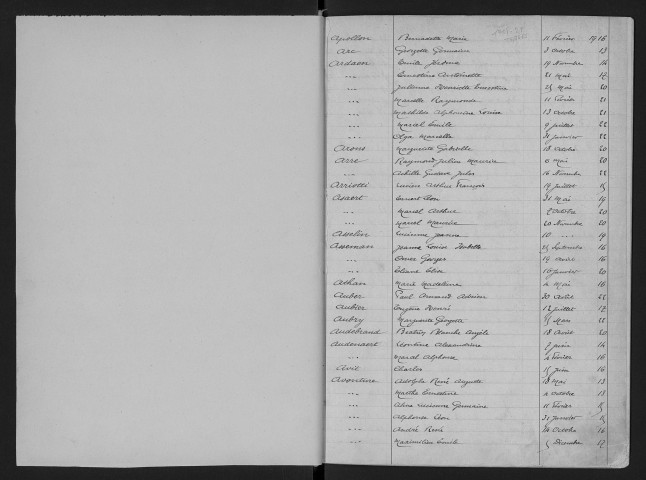 Apollon Bernadette Marie 11 février 1916
Arc Georgette Germaine 3 octobre 13
Ardaen Emile Jérôme 19 Novembre 14
... Ernestine Antoinette 21 mai 17
... Julienne Henriette Ernestine 25 mai 20
... Marcelle Raymonde 11 février 21
... Mathilde Alphonsine Louise 13 octobre 21
... Marcel Emile 9 juillet 22
... Olga Marcelle 31 janvier 22
Arons Marguerite Gabrielle 18 octobre 20
Arre Raymond Julien Maurice 6 mai 20
... Achille Gustave Jules 16 Novembre 22
Arriotti Lucien Arthur François 19 juillet 15
Asaert Ernest Léon 31 mai 19
... Marcel Arthur 2 octobre 20
... Marcel Maurice 20 Novembre 20
Asselin Lucienne Jeanne 10 ... 19
Asseman Jeanne Louise Isabelle 25 Septembre 16
... Omer Georges 19 avril 16
... Eliane Elise 16 janvier 20
Athan Marie Madeleine 4 mai 16
Auber Paul Armand Adrien 30 août 22
Aubier Eugène Henri 12 juillet 17
Aubry Marguerite Georgette Mars 22
Audebrand Béatrix Blanche Angèle 18 août 20
Audenaert Léontine Alexandrine 7 juin 14
... Marcel Alphonse 4 février 16
Avit Charles 15 juin 16
Avonture Adolphe René Auguste 18 mai 13
... Marthe Ernestine 4 octobre 13
... Alice Lucienne Germaine 11 février 15
... Alphonse Léon 31 janvier 15
... André René 24 octobre 16
... Maximilien Emile 5 Décembre 17